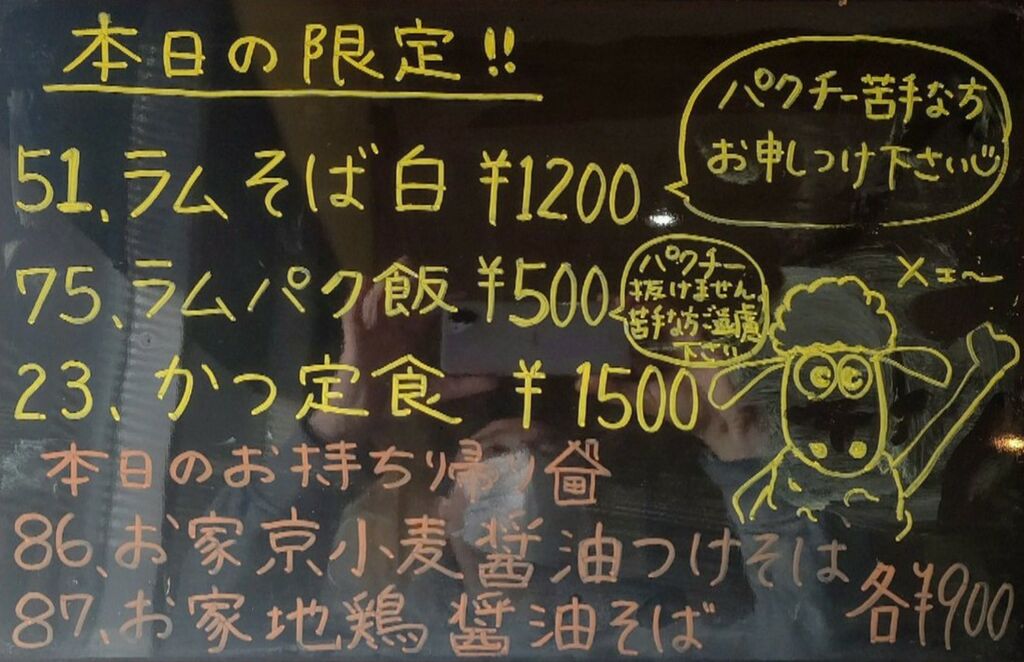 本日の限定!!
パクチー苦手な方
お申しつけ下さい
51、ラムそば白 ¥1200
75、ラムパク飯 ¥500
パクチー
抜けません。
苦手な方ご遠慮
下さい
メェ〜
23、かつ定食 ¥1500
本日のお持ち帰り
86、お家京小麦醤油つけそば
87、お家地鶏醤油そば
各¥900